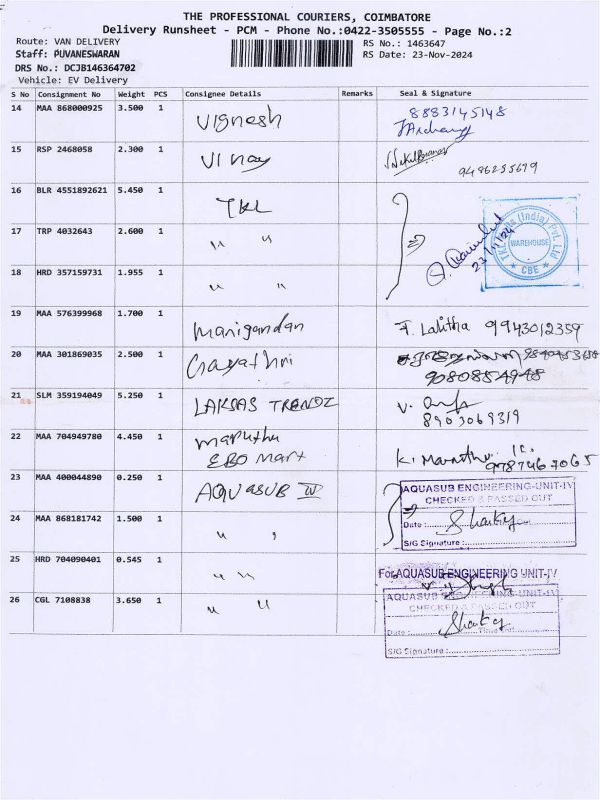 THE PROFESSIONAL COURIERS, COIMBATORE
Delivery Runsheet - PCM - Phone No.:0422-3505555 - Page No.:2
Route: VAN DELIVERY
RS No.: 1463647
Staff: PUVANESWARAN
RS Date: 23-Nov-2024
DRS No.: DCJB146364702
Vehicle: EV Delivery
S No Consignment No Weight PCS Consignee Details Remarks Seal & Signature
14 MAA 868000925 3.500 1 Vignesh 8883145148
15 RSP 2468058 2.300 1 Vinay 9486255679
16 BLR 4551892621 5.450 1 TKL
17 TRP 4032643 2.600 1 〃 23/11/24 (India) Pvt. Ltd WAREHOUSE * CBE *
18 HRD 357159731 1.955 1 〃
19 MAA 576399968 1.700 1 Manigandan F. Lalitha 9943012359
20 MAA 301869035 2.500 1 Gayathri
9080854948
21 SLM 359194049 5.250 1 LAKSAS TRENDZ V.
8903069319
22 MAA 704949780 4.450 1 Maruthu
EBO Mart K. 9787467065
23 MAA 400044890 0.250 1 AQUASUB IV AQUASUB ENGINEERING-UNIT-IV
CHECKED & PASSED OUT
24 MAA 868181742 1.500 1 〃 Date :
S/G Signature :
25 HRD 704090401 0.545 1 〃 For AQUASUB ENGINEERING UNIT-IV
26 CGL 7108838 3.650 1 〃 AQUASUB ENGINEERING-UNIT-IV
CHECKED & PASSED OUT
Date :
S/G Signature :